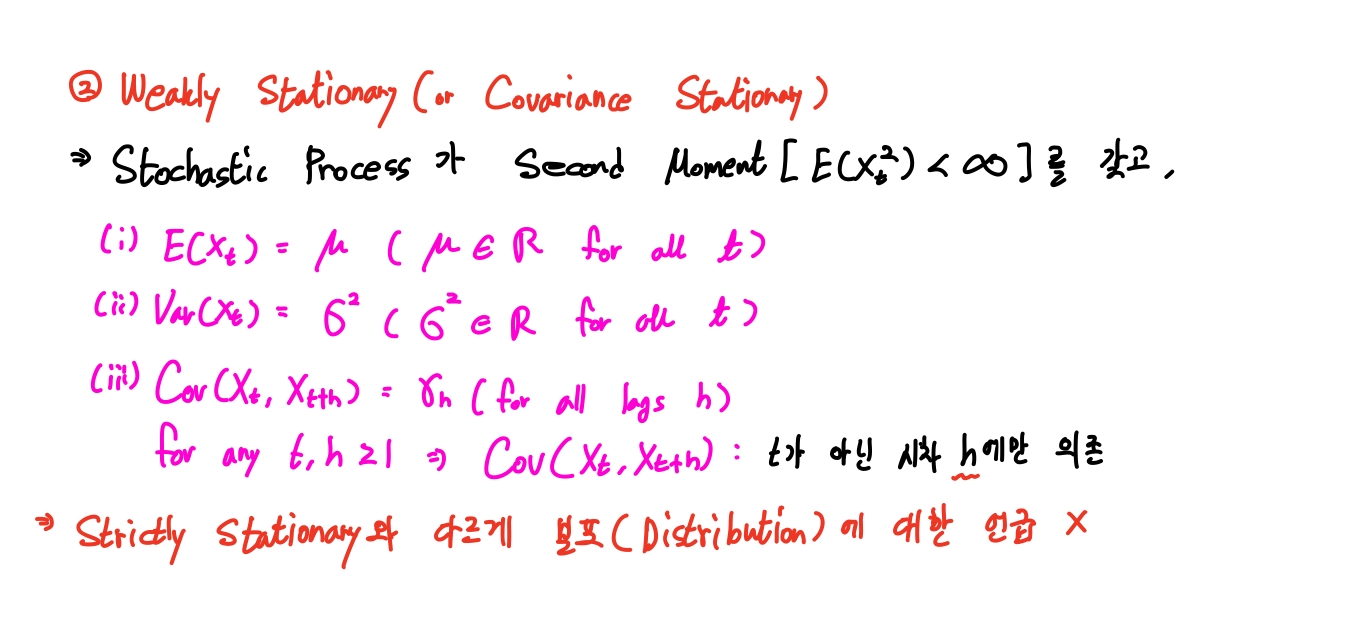 ② Weakly Stationary (or Covariance Stationary)
⇒ Stochastic Process 가 Second Moment [E(Xₜ²) < ∞]를 갖고,
(i) E(Xₜ) = μ (μ ∈ ℝ for all t)
(ii) Var(Xₜ) = σ² (σ² ∈ ℝ for all t)
(iii) Cov(Xₜ, Xₜ₊ₕ) = γₕ (for all lags h)
for any t, h ≥ 1 ⇒ Cov(Xₜ, Xₜ₊ₕ) : t가 아닌 시차 h에만 의존
⇒ Strictly Stationary와 다르게 분포(Distribution)에 대한 언급 X